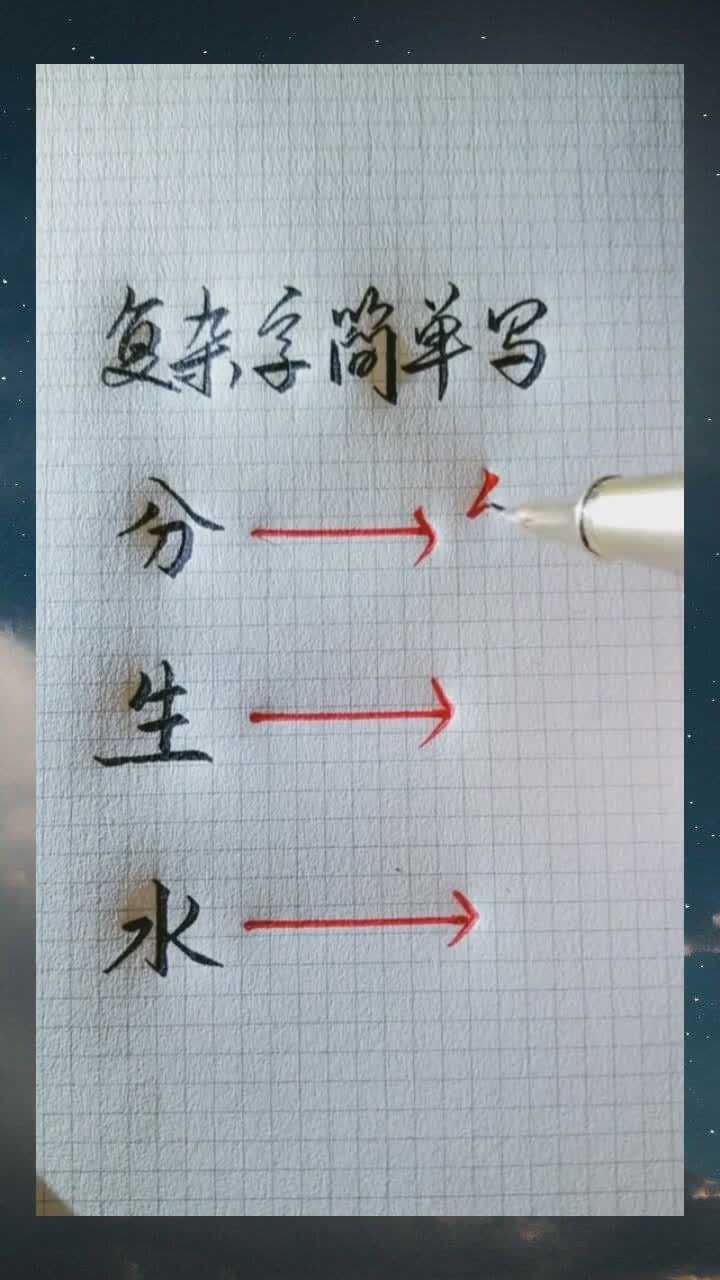 复杂字简单写
分
生
水